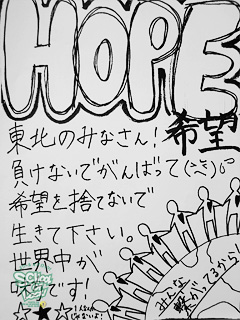 HOPE
希望
東北のみなさん!
負けないでがんばって(>ε<)
希望を捨てないで
生きて下さい。
世界中が
味方です!
みんな
繋がってるから!